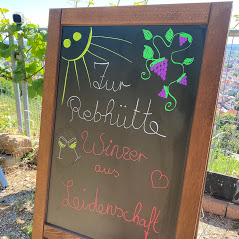 Zur
Rebhütte
Winzer
aus
Leidenschaft